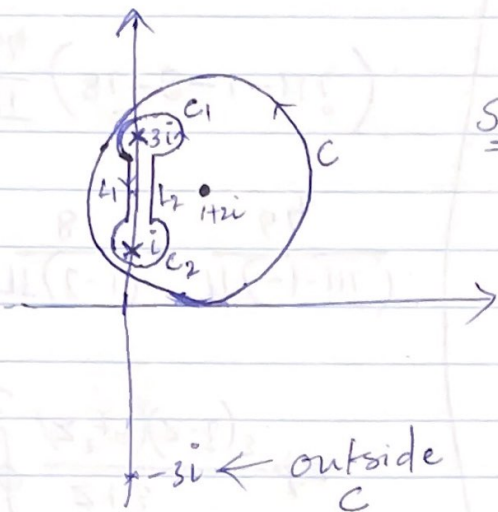 C₁
×3i
C
S
L₁
L₂
1+2i
×i
C₂
-3i ← outside
C